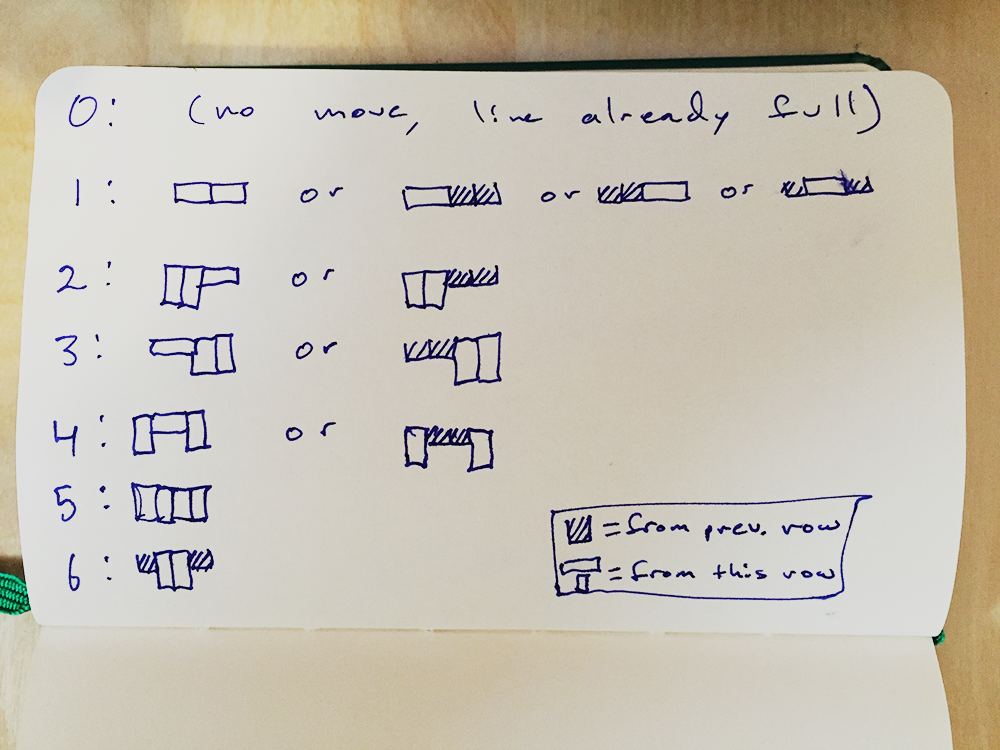 0: (no move, line already full)
1: or or or
2: or
3: or
4: or
5:
6:
= from prev. row
= from this row